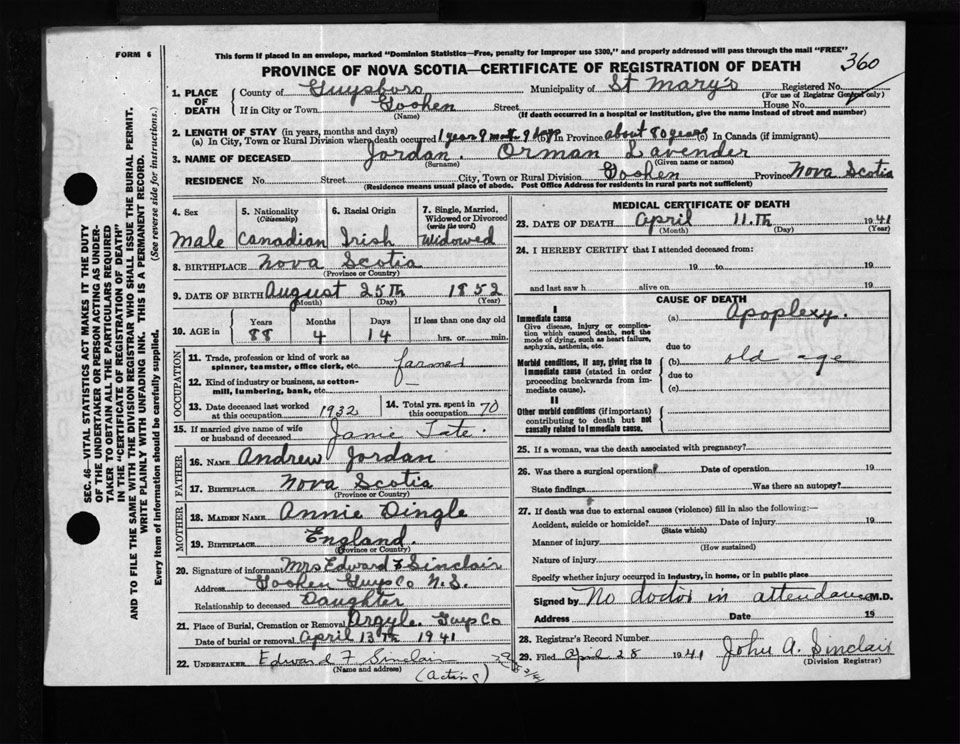 FORM 6
This form if placed in an envelope, marked "Dominion Statistics—Free, penalty for improper use $300," and properly addressed will pass through the mail "FREE"
360
PROVINCE OF NOVA SCOTIA—CERTIFICATE OF REGISTRATION OF DEATH
1. PLACE OF DEATH
County of Guysboro Municipality of St Mary's Registered No.
(For use of Registrar General only)
If in City or Town Goshen Street House No.
(Name) (If death occurred in a hospital or institution, give the name instead of street and number)
2. LENGTH OF STAY (in years, months and days)
(a) In City, Town or Rural Division where death occurred 1 year 9 mths 9 days (b) In Province about 80 years (c) In Canada (if immigrant)
3. NAME OF DECEASED Jordan. Orman Lavender
(Surname) (Given name or names)
RESIDENCE No. Street City, Town or Rural Division Goshen Province Nova Scotia
(Residence means usual place of abode. Post Office Address for residents in rural parts not sufficient)
4. Sex
Male
5. Nationality
(Citizenship)
Canadian
6. Racial Origin
Irish
7. Single, Married, Widowed or Divorced
(write the word)
Widowed
8. BIRTHPLACE Nova Scotia
(Province or Country)
9. DATE OF BIRTH August 25th 1852
(Month) (Day) (Year)
10. AGE in
Years Months Days If less than one day old
88 4 14 hrs. or min.
OCCUPATION
11. Trade, profession or kind of work as spinner, teamster, office clerk, etc. farmer
12. Kind of industry or business, as cotton-mill, lumbering, bank, etc. —
13. Date deceased last worked at this occupation 1932
14. Total yrs. spent in this occupation 70
15. If married give name of wife or husband of deceased Janie Tate.
FATHER
16. NAME Andrew Jordan
17. BIRTHPLACE Nova Scotia
(Province or Country)
MOTHER
18. MAIDEN NAME Annie Dingle
19. BIRTHPLACE England.
(Province or Country)
20. Signature of informant Mrs Edward F Sinclair
Address Goshen Guys Co N.S.
Relationship to deceased Daughter
21. Place of Burial, Cremation or Removal Argyle Guys Co
Date of burial or removal April 13th 1941
22. UNDERTAKER Edward F Sinclair
(Name and address)
(Acting)
MEDICAL CERTIFICATE OF DEATH
23. DATE OF DEATH April 11th 1941
(Month) (Day) (Year)
24. I HEREBY CERTIFY that I attended deceased from:
19 to 19
and last saw h alive on 19
CAUSE OF DEATH
I
Immediate cause
Give disease, injury or complication which caused death, not the mode of dying, such as heart failure, asphyxia, asthenia, etc.
(a) Apoplexy.
due to
Morbid conditions, if any, giving rise to immediate cause (stated in order proceeding backwards from immediate cause).
(b) old age
due to
(c)
II
Other morbid conditions (if important) contributing to death but not causally related to immediate cause.
25. If a woman, was the death associated with pregnancy?
26. Was there a surgical operation? Date of operation 19
State findings Was there an autopsy?
27. If death was due to external causes (violence) fill in also the following:—
Accident, suicide or homicide? Date of injury 19
(State which)
Manner of injury
(How sustained)
Nature of injury
Specify whether injury occurred in industry, in home, or in public place
Signed by No doctor in attendance M.D.
Address Date 19
28. Registrar's Record Number
29. Filed April 28 1941 John A. Sinclair
(Division Registrar)
SEC. 46—VITAL STATISTICS ACT MAKES IT THE DUTY
OF THE UNDERTAKER OR PERSON ACTING AS UNDER-
TAKER TO OBTAIN ALL THE PARTICULARS REQUIRED
IN THE "CERTIFICATE OF REGISTRATION OF DEATH"
AND TO FILE THE SAME WITH THE DIVISION REGISTRAR WHO SHALL ISSUE THE BURIAL PERMIT.
WRITE PLAINLY WITH UNFADING INK. THIS IS A PERMANENT RECORD.
Every item of information should be carefully supplied. (See reverse side for instructions.)